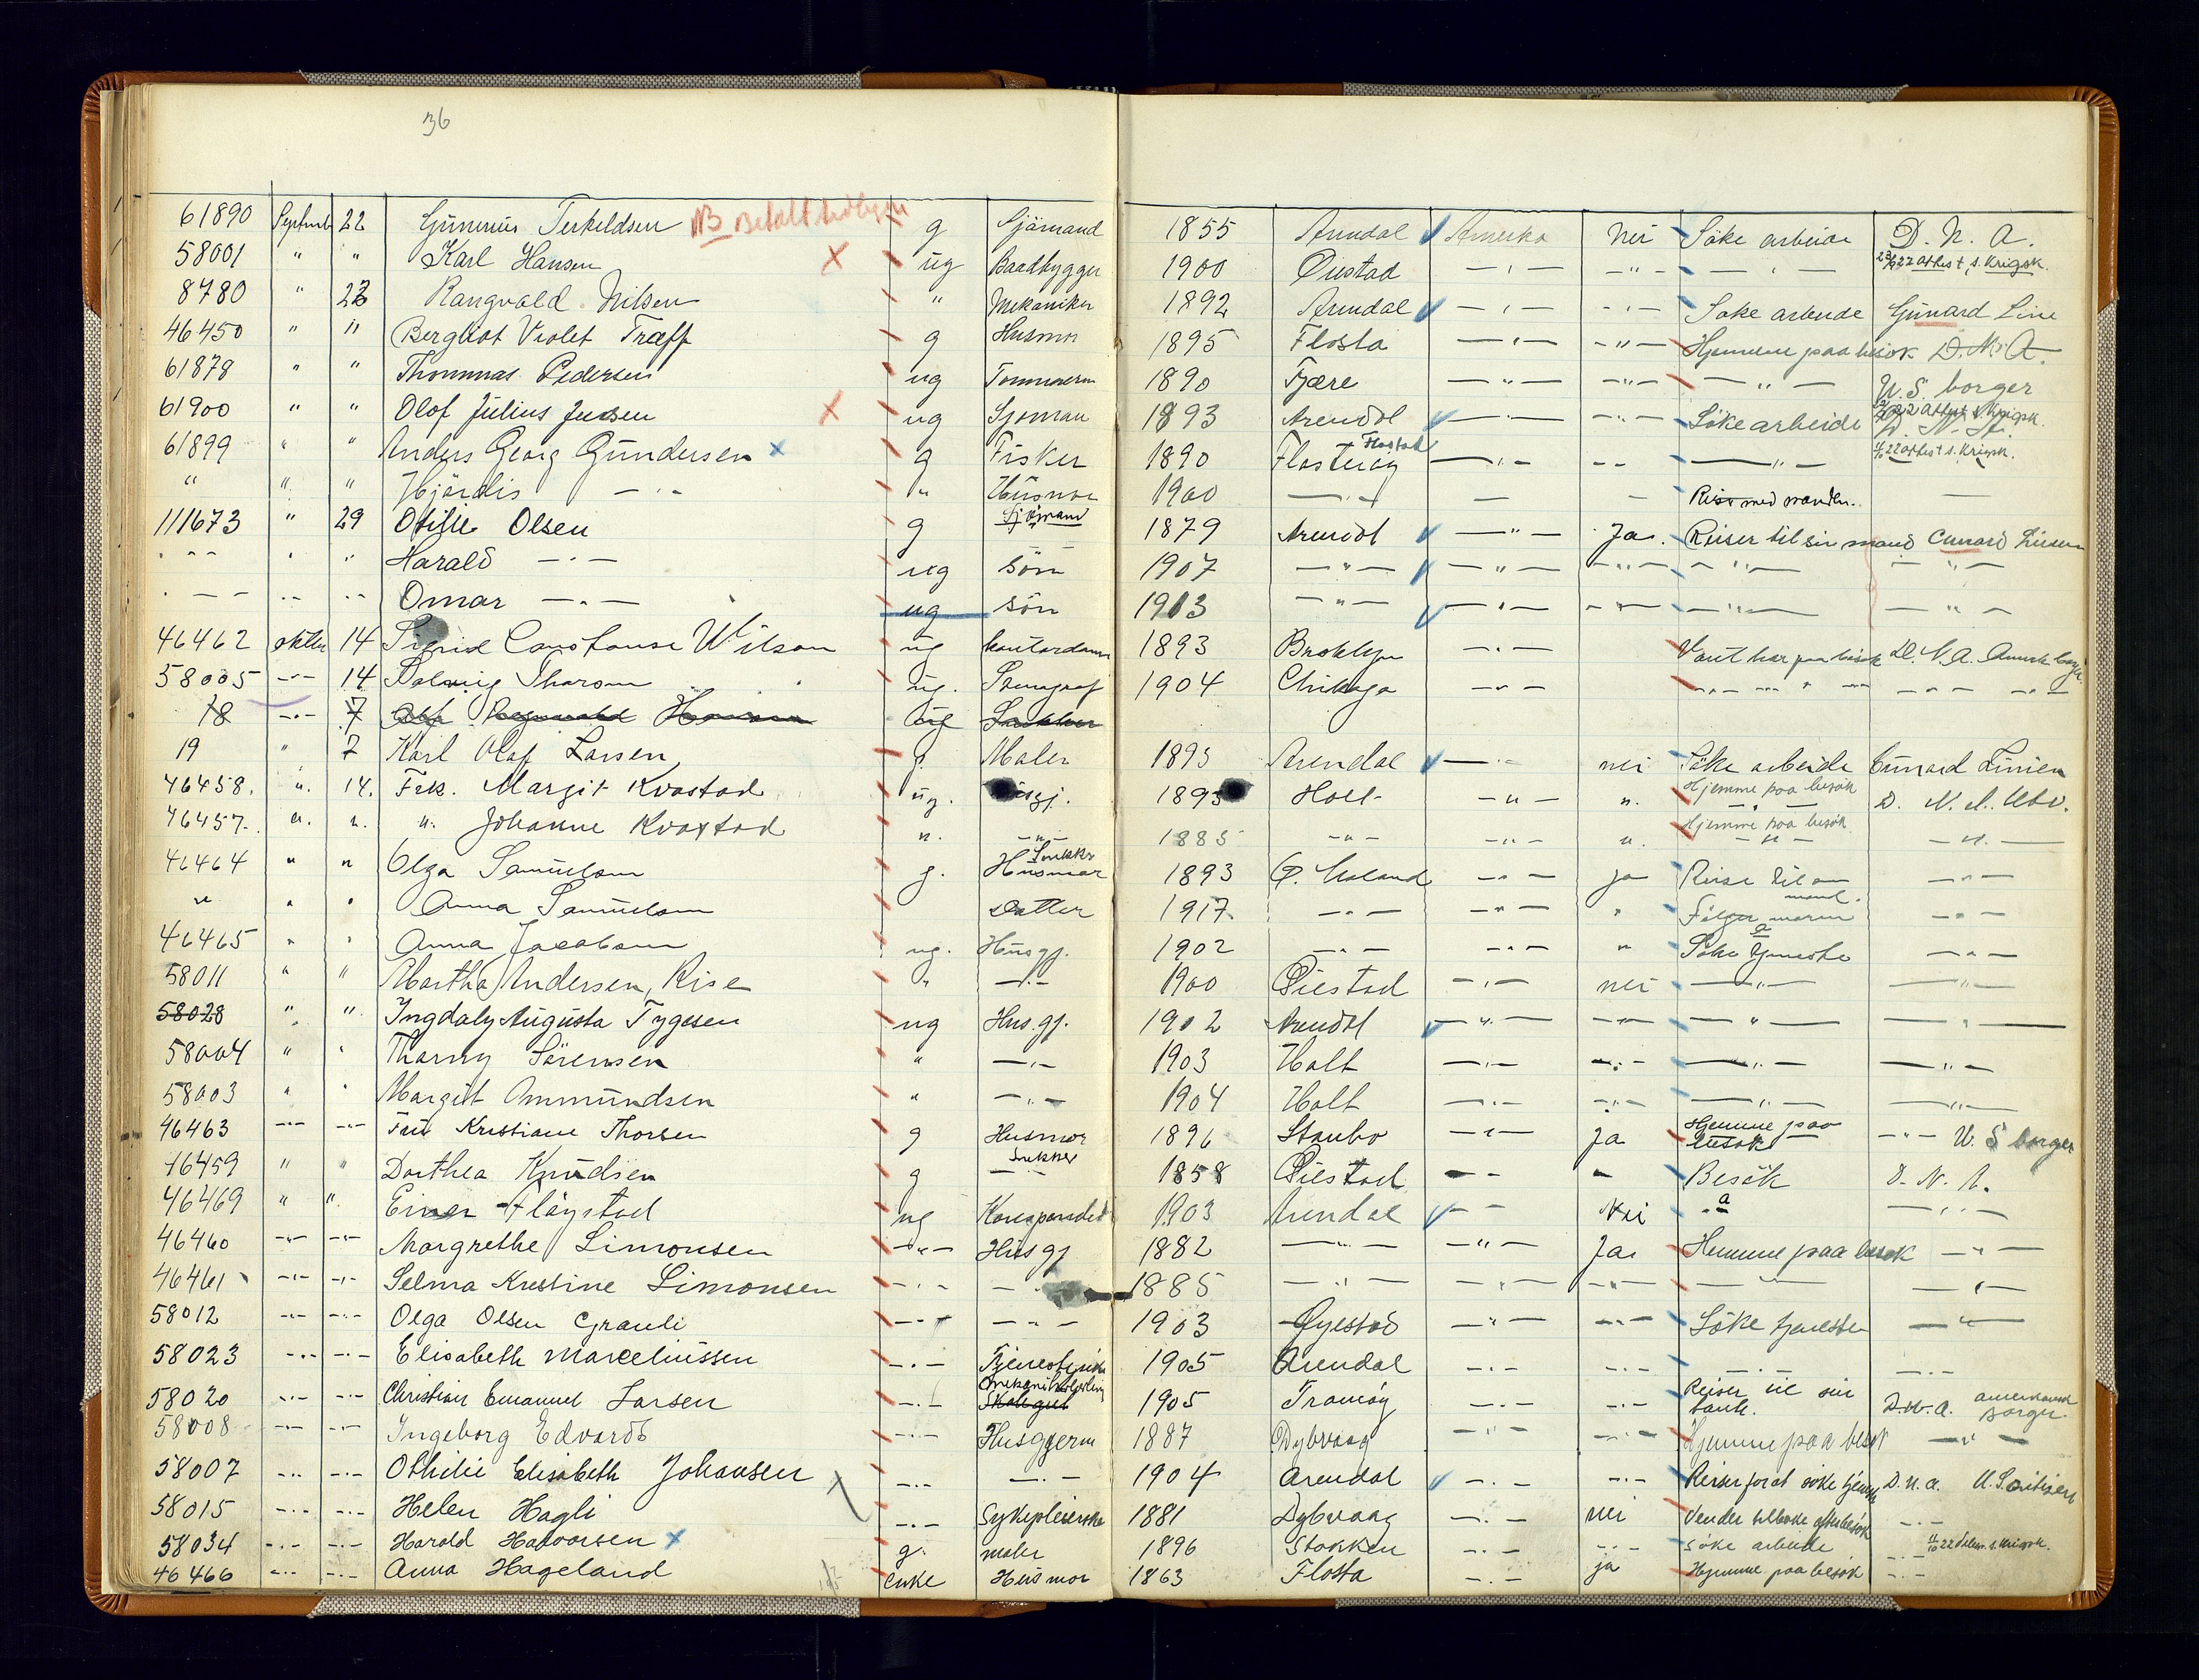 36
61890 Septemb 22 Gunnius Terkeldsen NB Betalt g Sjömand 1855 Arendal Amerika Nei Söke arbeide D. N. A.
58001 " " Karl Hansen x ug Baadbygger 1900 Öiestad — " — — " — — " — 22 attest s. Krigsk.
8780 " 23 Rangvald Nilsen " Mekaniker 1892 Arendal — " — — " — Söke arbeide Cunard Line
46450 " " Bergliot Violet Træff g Husmor 1895 Flosta — " — — " — Hjemme paa besök D. N. A.
61878 " " Thommas Pedersen ug Tömmerm 1890 Fjære — " — — " — — " — U. S. borger
61900 " " Olof Julius Jensen x ug Sjöman 1893 Arendal — " — — " — Söke arbeide 22 attest s. Krigsk. D. N. A.
61899 " " Anders Georg Gundersen x g Fisker 1890 Flosteröy Flostad — " — — — — " — 22 attest s. Krigsk.
" " " Hjördis — " — " Husmor 1900 — " — — — Reise med manden. —
111673 " 29 Otilie Olsen g Sjömand 1879 Arendal — " — Ja. Reiser til sin mand Cunard Linien
" " " Harald — " — ug Sön 1907 — " — — " — — " — — " — — " —
" " " Omar — " — ug Sön 1913 — " — — " — — " — — " — — " —
46462 oktbr 14 Sigrid Constance Wilson ug kontordame 1893 Broklyn — " — Vært her paa besök D. N. A. Amerik borger
58005 — " — 14 Solveig Thorsen ug. Stenograf 1904 Chikago — " — — " — — " —
18 — " — 7 Alf Ragnvald Hansen ug Snekker
19 " 7 Karl Olaf Larsen g. Maler 1893 Arendal — " — nei Söke arbeide Cunard Linien
46458. " 14. Frk. Margit Kvastad ug. Husgj. 1893 Holt — " — " Hjemme paa besök D. N. A. Udv.
46457. " " " Johanne Kvastad " — " — 1885 — " — — " — " Hjemme paa besök — " —
46464 " " Olga Samuelsen g. Snekker Husmor 1893 Ö. Moland — " — ja Reise til sin mand — " —
" " " Anna Samuelsen Datter 1917 — " — — " — " Fölger moren — " —
46465 " " Anna Jacobsen ug. Husgj. 1902 — " — — " — " Söke tjeneste — " —
58011 " " Martha Andersen, Rise " — " — 1900 Öiestad — " — nei — " — — " —
58028 " " Ingdaly Augusta Tygesen ug Hus.gj. 1902 Arendal — " — — " — — " — — " —
58004 " " Thorny Sörensen " — " — 1903 Holt — " — — " — — " — — " —
58003 " " Margit Ommundsen " — " — 1904 Holt — " — — " — — " — — " —
46463 — " — — " — Fru Kristiane Thorsen g Husmor 1896 Staubo — " — ja Hjemme paa besök — " — U. S borger
46459 " " Dorthea Knudsen g Snekker — " — 1858 Öiestad — " — " Besök D. N. A.
46469 " " Einar Flöystad ug Korrespondent 1903 Arendal — " — Nei — " — — " —
46460 — " — — " — Margrethe Simonsen — " — Husgj 1882 — " — — " — Ja. Hemme paa besök — " —
46461 — " — — " — Selma Kristine Simonsen — " — — " — 1885 — " — — " — — " — — " — — " —
58012 — " — — " — Olga Olsen Grauli — " — — " — 1903 Öyestad — " — — " — Söke tjeneste — " —
58023 — " — — " — Elisabeth Marceliussen — " — Tjenestepike 1905 Arendal — " — — " — — " — — " —
58020 — " — — " — Christian Emanuel Larsen — " — Mekanikerlærling Skolegut 1905 Tromöy — " — — " — Reiser til sin tante. D. N. A. amerikansk borger.
58008 — " — — " — Ingeborg Edvards — " — Husgjern 1887 Dybvaag — " — — " — Hjemme paa besök — " —
58007 — " — — " — Othilie Elisabeth Johansen — " — — " — 1904 Arendal — " — — " — Reiser for at söke tjeneste D. N. A. U. S citizen
58015 — " — — " — Helen Hagli — " — Sykepleierske 1881 Dybvaag — " — nei Vender tilbake efter besök — " —
58034 — " — — " — Harald Halvorsen x g. maler 1896 Stokken — " — — " — söke arbeide — " — 22 s. Krigsk.
46466 — " — — " — Anna Hageland enke Husmor 1863 Flosta — " — ja Hjemme paa besök — " —